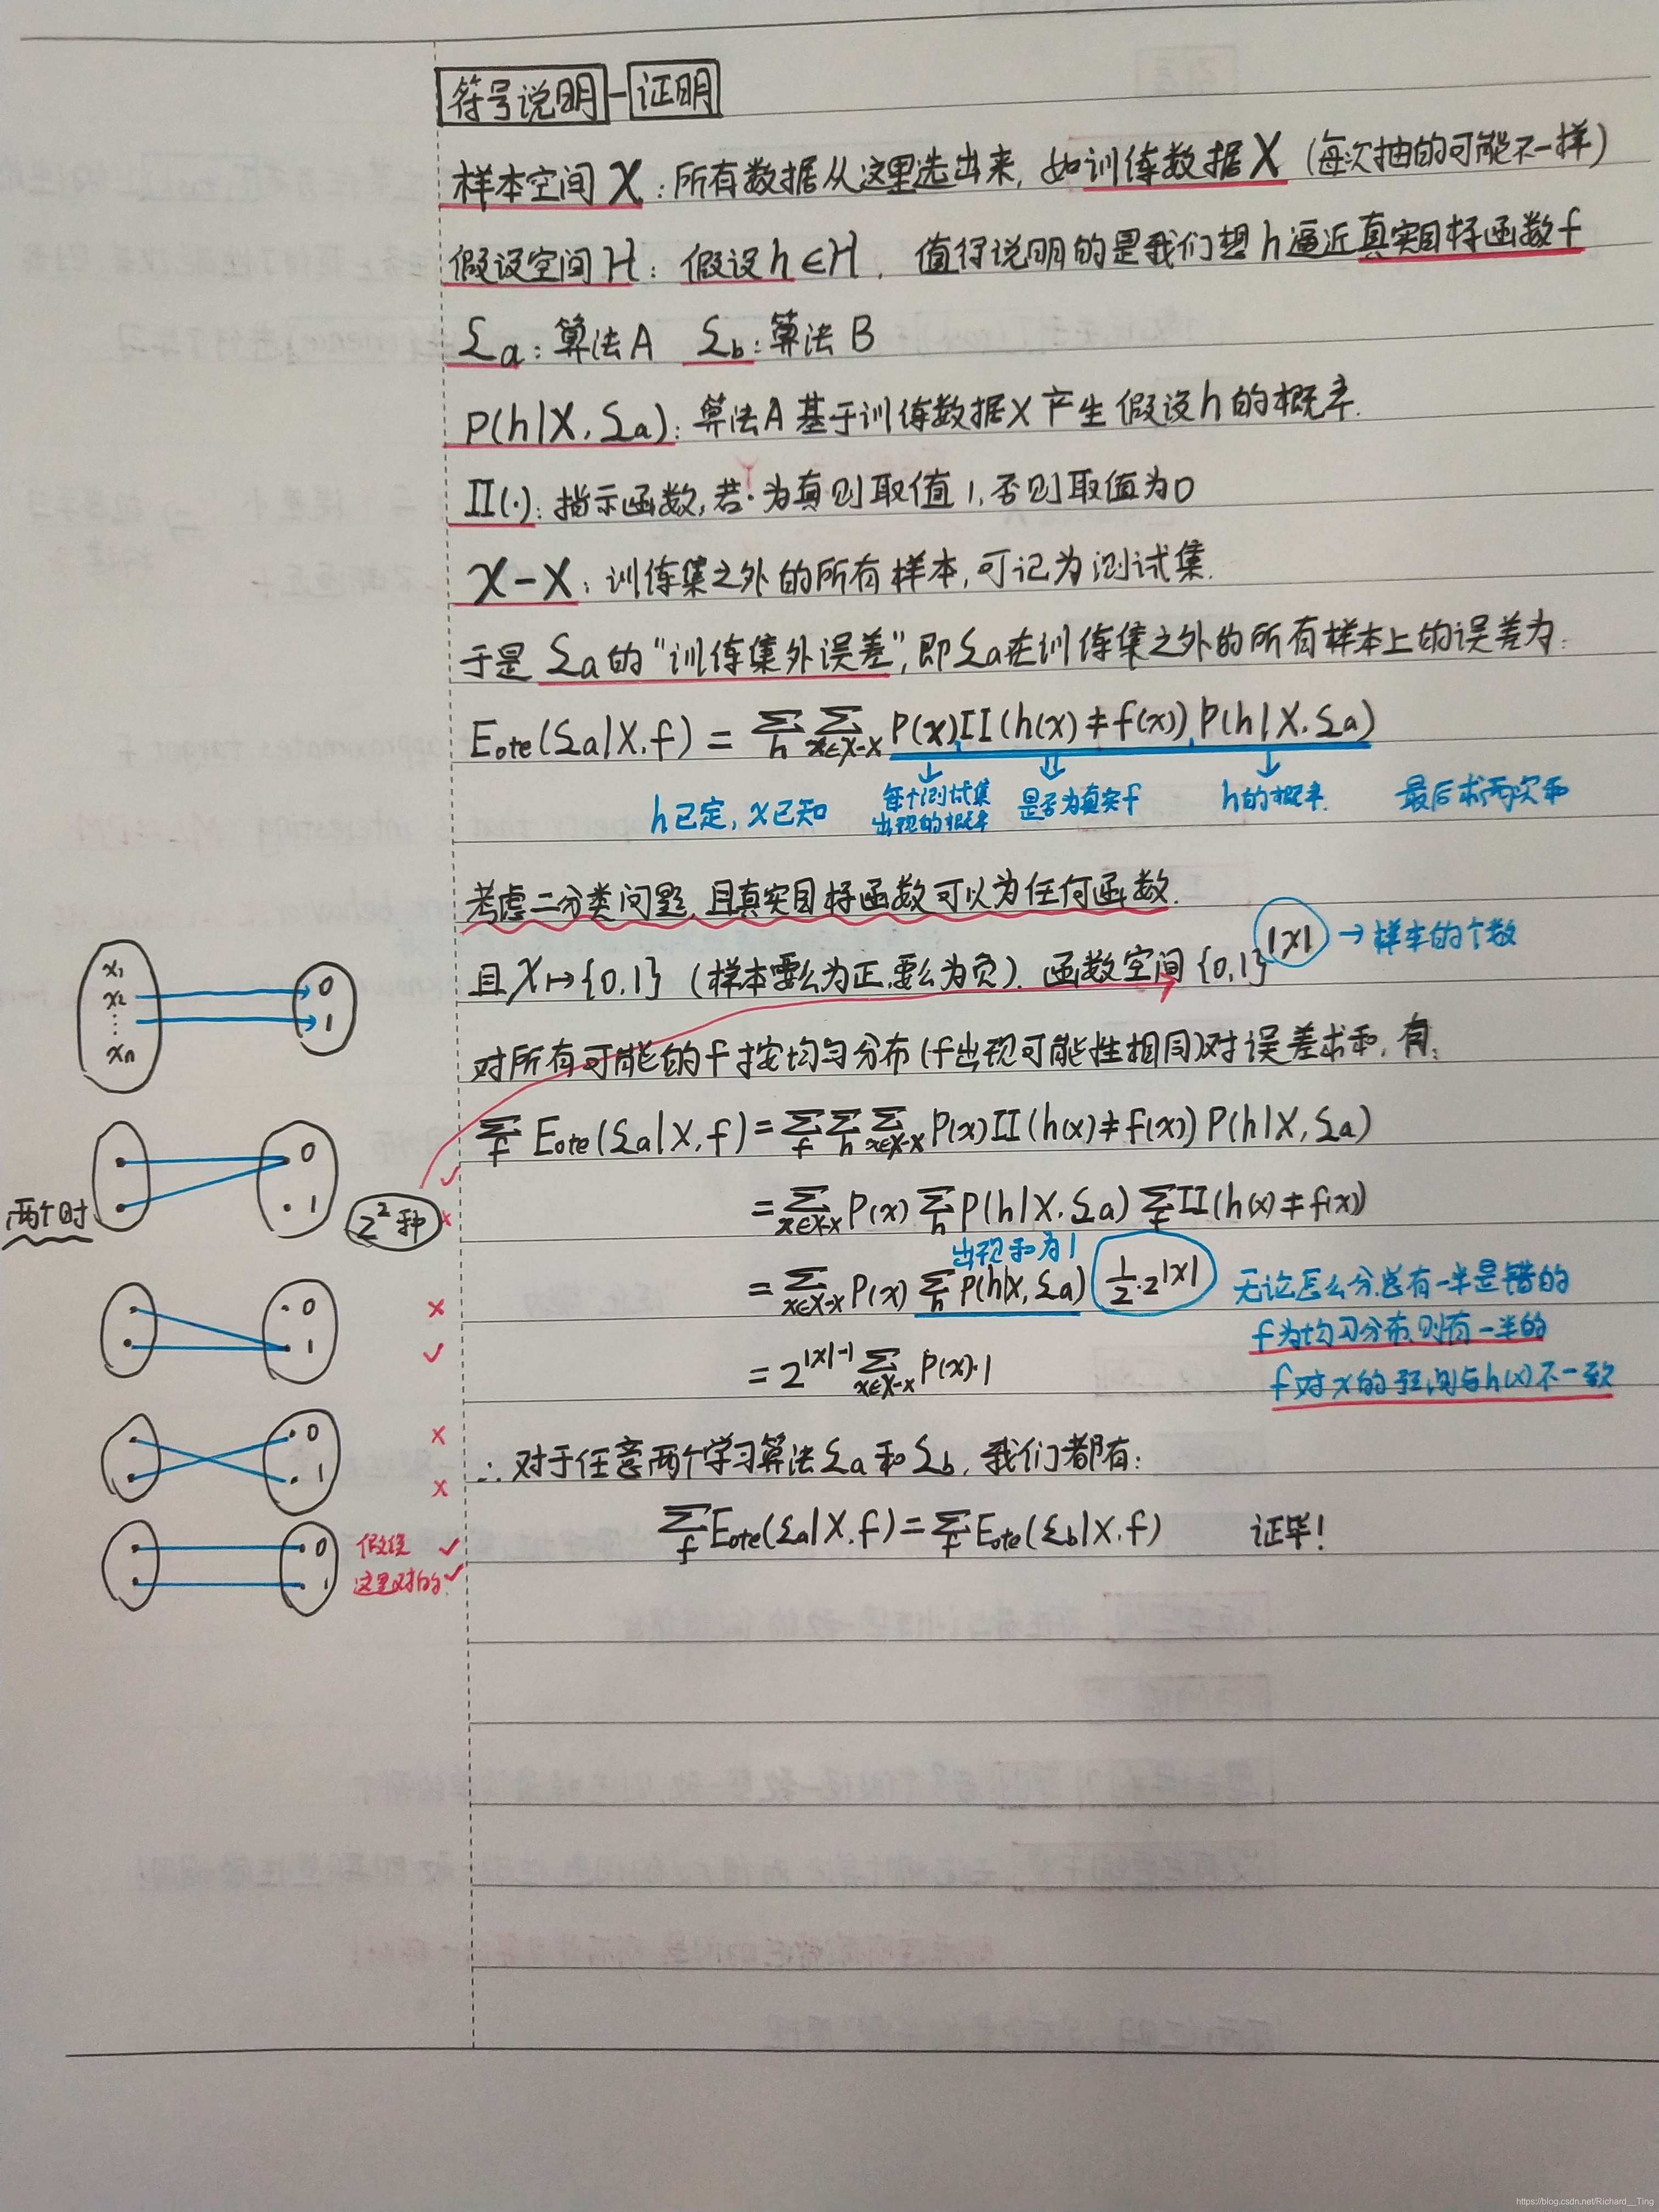 符号说明-证明
样本空间 X：所有数据从这里选出来，如训练数据X（每次抽的可能不一样）
假设空间H：假设h∈H，值得说明的是我们想h逼近真实目标函数f
Σa：算法A Σb：算法B
P(h|X,Σa)：算法A基于训练数据X产生假设h的概率.
II(·)：指示函数,若·为真则取值1,否则取值为0
X-X：训练集之外的所有样本,可记为测试集.
于是Σa的"训练集外误差",即Σa在训练集之外的所有样本上的误差为：
Eote(Σa|X,f) = Σh Σx∈X-X P(x)II(h(x)≠f(x))P(h|X,Σa)
h已定，x已知 每个测试集出现的概率 是否为真实f h的概率. 最后求两次和
考虑二分类问题,且真实目标函数可以为任何函数.
且X↦{0,1}（样本要么为正,要么为负）. 函数空间{0,1}^|X| → 样本的个数
对所有可能的f按均匀分布(f出现可能性相同)对误差求和，有：
Σf Eote(Σa|X,f) = Σf Σh Σx∈X-X P(x)II(h(x)≠f(x))P(h|X,Σa)
= Σx∈X-X P(x) Σh P(h|X,Σa) Σf II(h(x)≠f(x))
出现和为1
= Σx∈X-X P(x) Σh P(h|X,Σa) 1/2·2^|X| 无论怎么分总有一半是错的
f为均匀分布,则有一半的
= 2^|X|-1 Σx∈X-X P(x)·1
f对x的预测与h(x)不一致
∴对于任意两个学习算法Σa和Σb，我们都有：
Σf Eote(Σa|X,f) = Σf Eote(Σb|X,f) 证毕！
x1
x2
⋮
xn
0
1
0
1
两个时
2^2种
✓
×
0
1
×
✓
0
1
×
×
0
1
假设 ✓
这里对的 ✓
https://blog.csdn.net/Richard__Ting